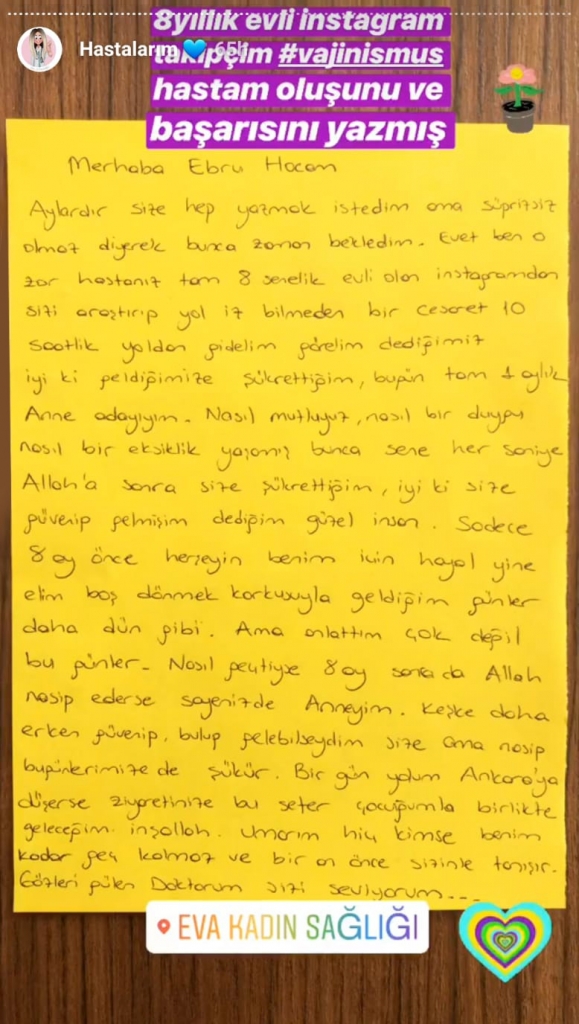 8yıllık evli instagram
Hastalarım 💙 65h
takipçim #vajinismus
hastam oluşunu ve
başarısını yazmış
Merhaba Ebru Hocam
Aylardır size hep yazmak istedim ama süprizsiz
olmaz diyerek bunca zaman bekledim. Evet ben o
zor hastanız tam 8 senelik evli olan instagramdan
sizi araştırıp yol iz bilmeden bir cesaret 10
saatlik yoldan gidelim görelim dediğimiz
iyi ki geldiğimize şükrettiğim, bugün tam 1 aylık
Anne adayıyım. Nasıl mutluyuz, nasıl bir duygu
nasıl bir eksiklik yaşamış bunca sene her saniye
Allah'a sonra size şükrettiğim, iyi ki size
güvenip gelmişim dediğim güzel insan. Sadece
8 ay önce herşeyin benim için hayal yine
elim boş dönmek korkusuyla geldiğim günler
daha dün gibi. Ama anlattım çok değil
bu günler- Nasıl geçtiyse 8 ay sonra da Allah
nasip ederse sayenizde Anneyim. Keşke daha
erken güvenip, bulup gelebilseydim size ama nasip
bugünlerimize de şükür. Bir gün yolum Ankara'ya
düşerse ziyaretinize bu sefer çocuğumla birlikte
geleceğim inşallah. Umarım hiç kimse benim
kadar geç kalmaz ve bir an önce sizinle tanışır.
Gözleri gülen Doktorum sizi seviyorum...
EVA KADIN SAĞLIĞI